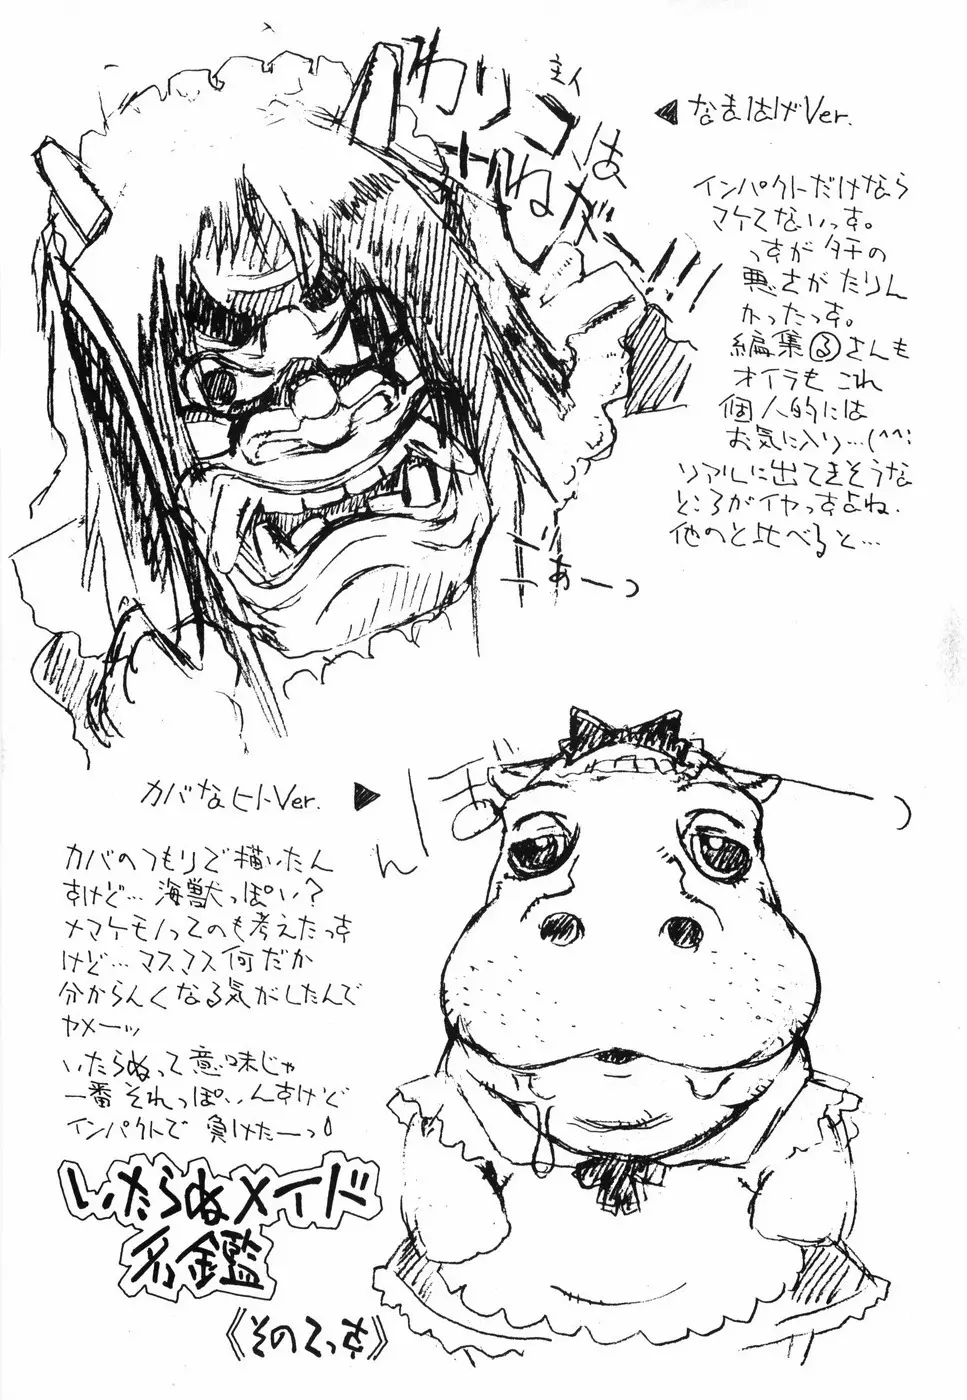 わりコは
主イ
ねがー!!
◀なまはげVer.
インパクトだけなら
マケてないっす。
っすがタチの
悪さがたりん
かったっす。
編集るさんも
オイラもこれ
個人的には
お気に入り…(^^;
リアルに出てきそうな
ところがイヤっすよね.
他のと比べると…
ぁーっ
カバなヒトVer.▶
カバのつもりで描いたん
すけど…海獣っぽい?
ナマケモノってのも考えたっす
けど…マスマス何だか
分からんくなる気がしたんで
ヤメーッ
いたらぬって意味じゃ
一番それっぽいんすけど
インパクトで負けたーっ!
ぼ
ん
ーっ
いたらぬメイド
名鑑
《そのてっす》